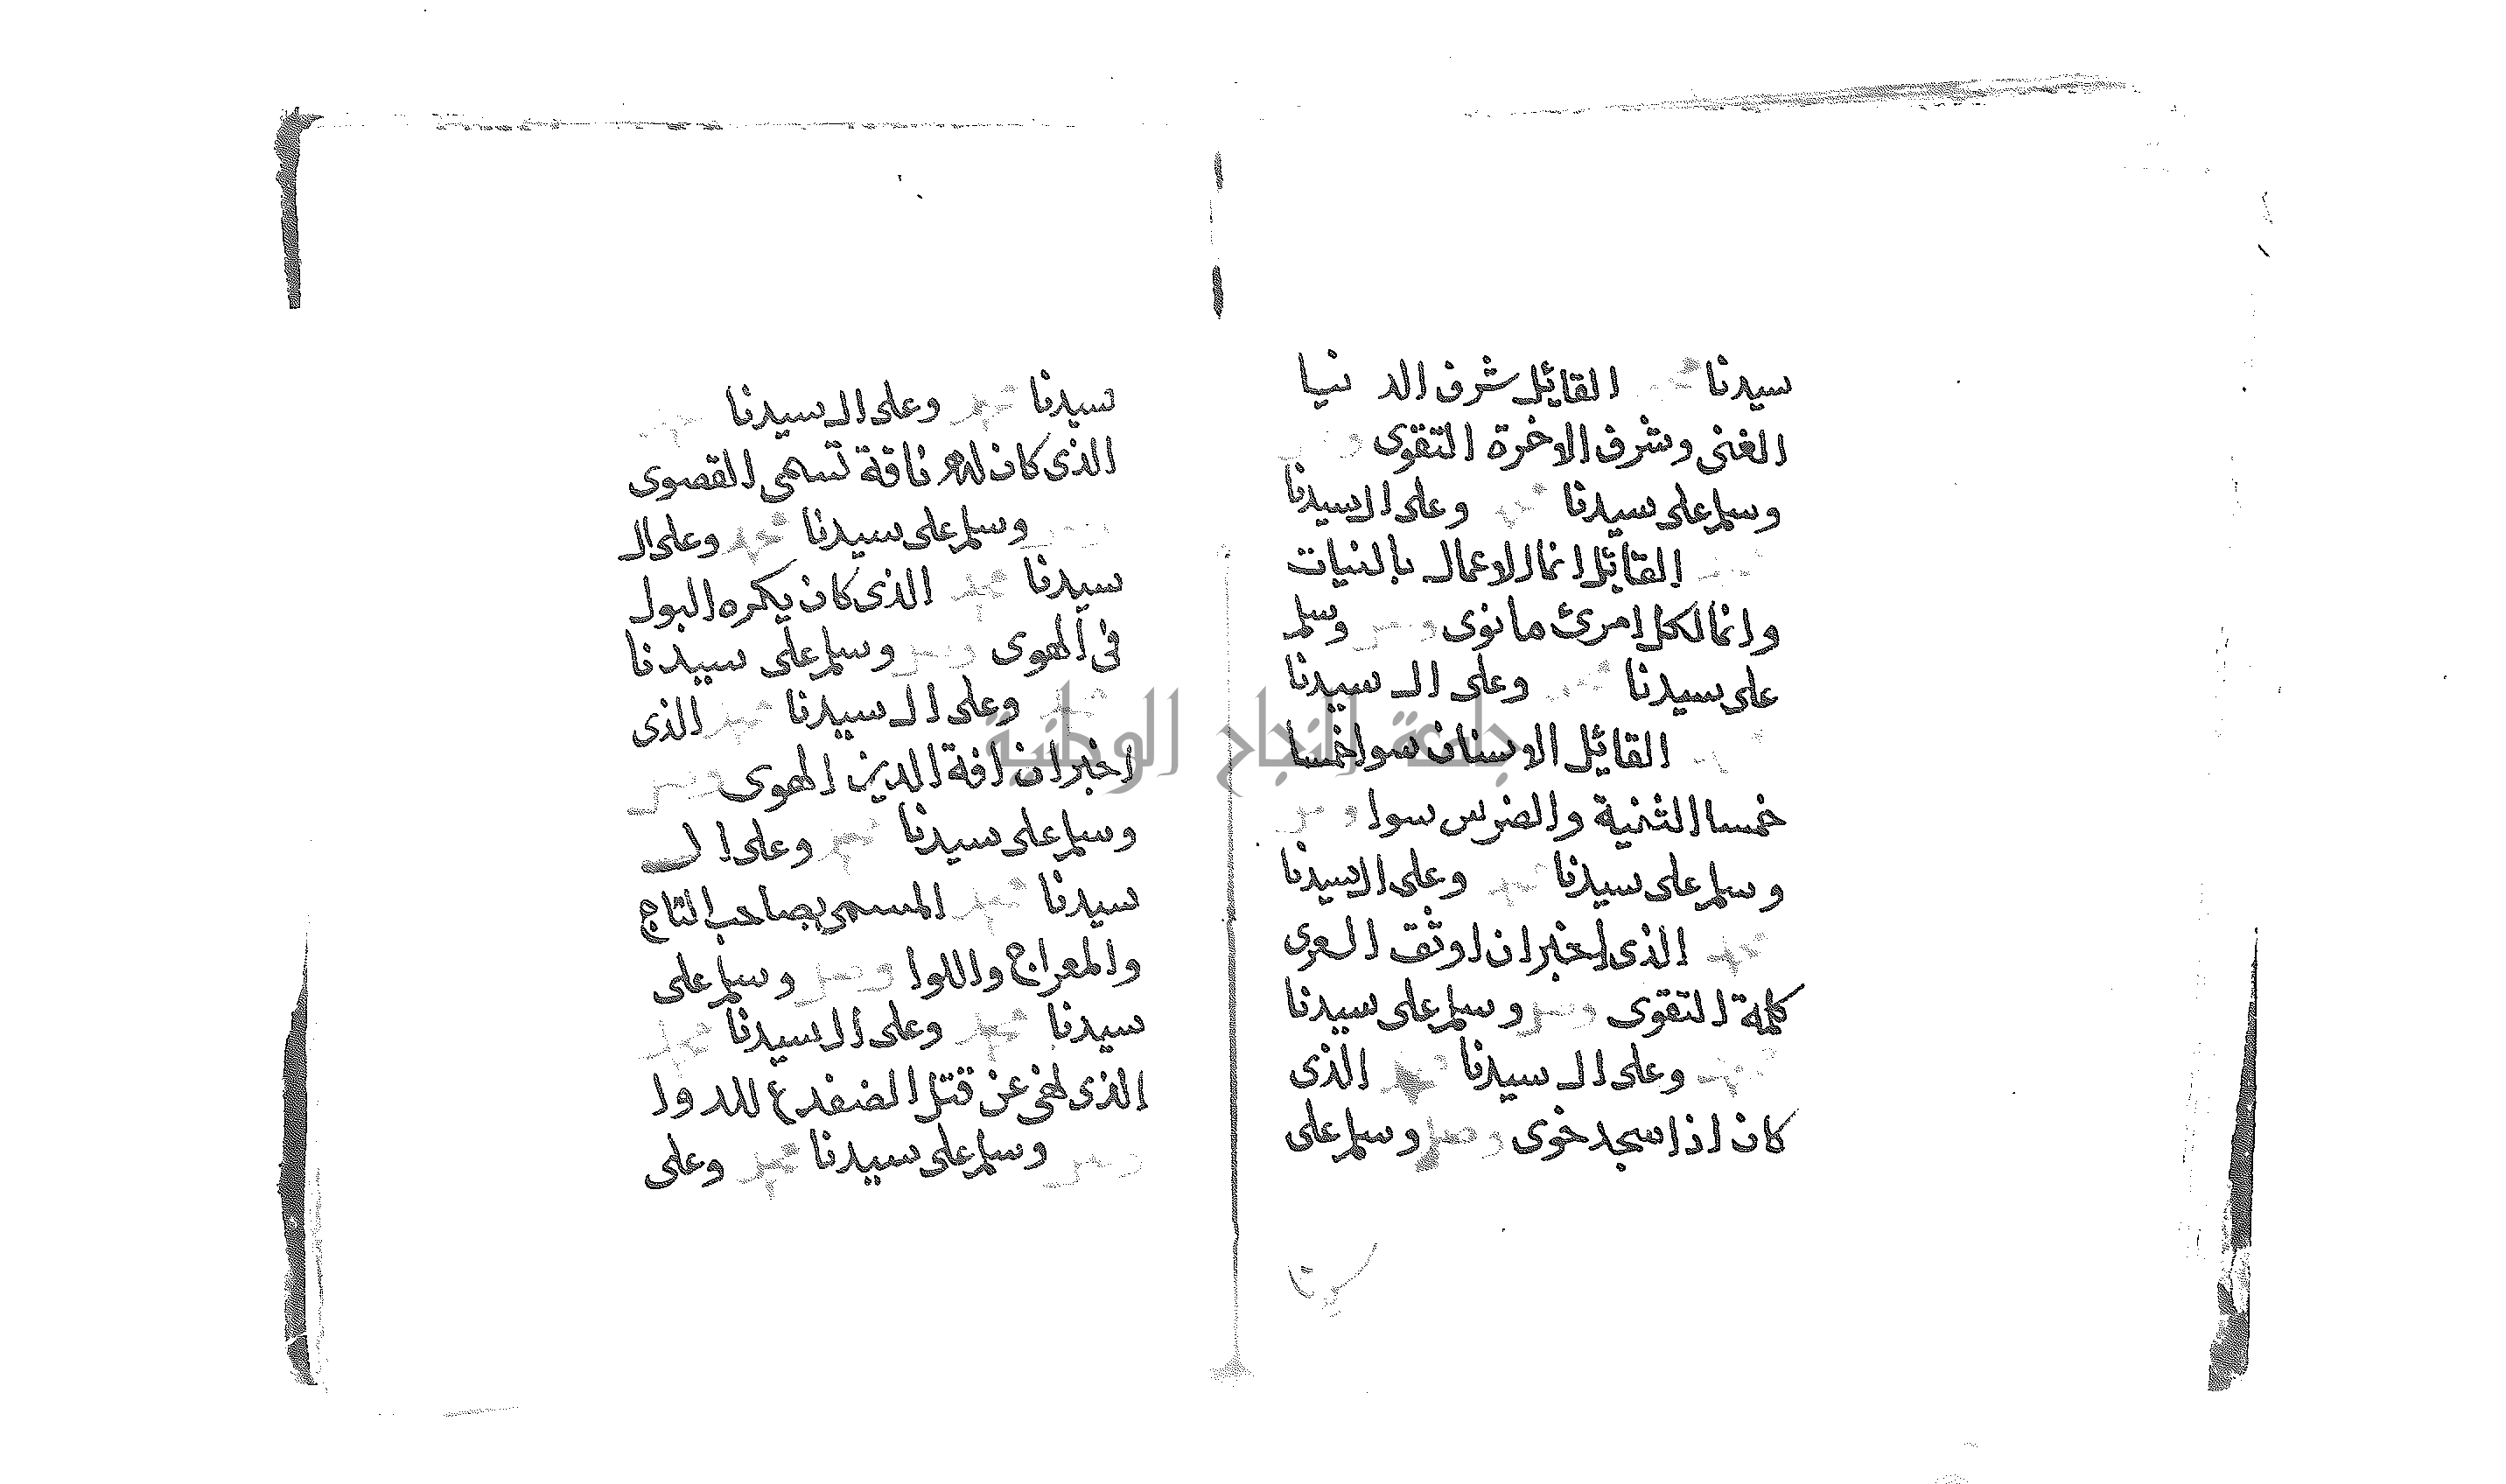 سيدنا محمد القائل شرف الدنيا
الغنى وشرف الاخرة التقوى وصل
وسلم على سيدنا محمد وعلى ال سيدنا
محمد القائل انما الاعمال بالنيات
وانما لكل امرئ ما نوى وصل وسلم
على سيدنا محمد وعلى ال سيدنا
محمد القائل الاسنان سوا خمسا
خمسا الثنية والضرس سوا وصل
وسلم على سيدنا محمد وعلى ال سيدنا
محمد الذى اخبر ان اوثق العرى
كلمة التقوى وصل وسلم على سيدنا
محمد وعلى ال سيدنا محمد الذى
كان اذا سجد خوى وصل وسلم على
سيدنا محمد وعلى ال سيدنا محمد
الذى كان له ناقة تسمى القصوى
وصل وسلم على سيدنا محمد وعلى ال
سيدنا محمد الذى كان يكره البول
فى الهوى وصل وسلم على سيدنا
محمد وعلى ال سيدنا محمد الذى
اخبر ان افة الدين الهوى وصل
وسلم على سيدنا محمد وعلى ال
سيدنا محمد المسمى بصاحب التاج
والمعراج واللوا وصل وسلم على
سيدنا محمد وعلى ال سيدنا محمد
الذى نهى عن قتل الضفدع للدوا
وصل وسلم على سيدنا محمد وعلى
جامعة النجاح الوطنية